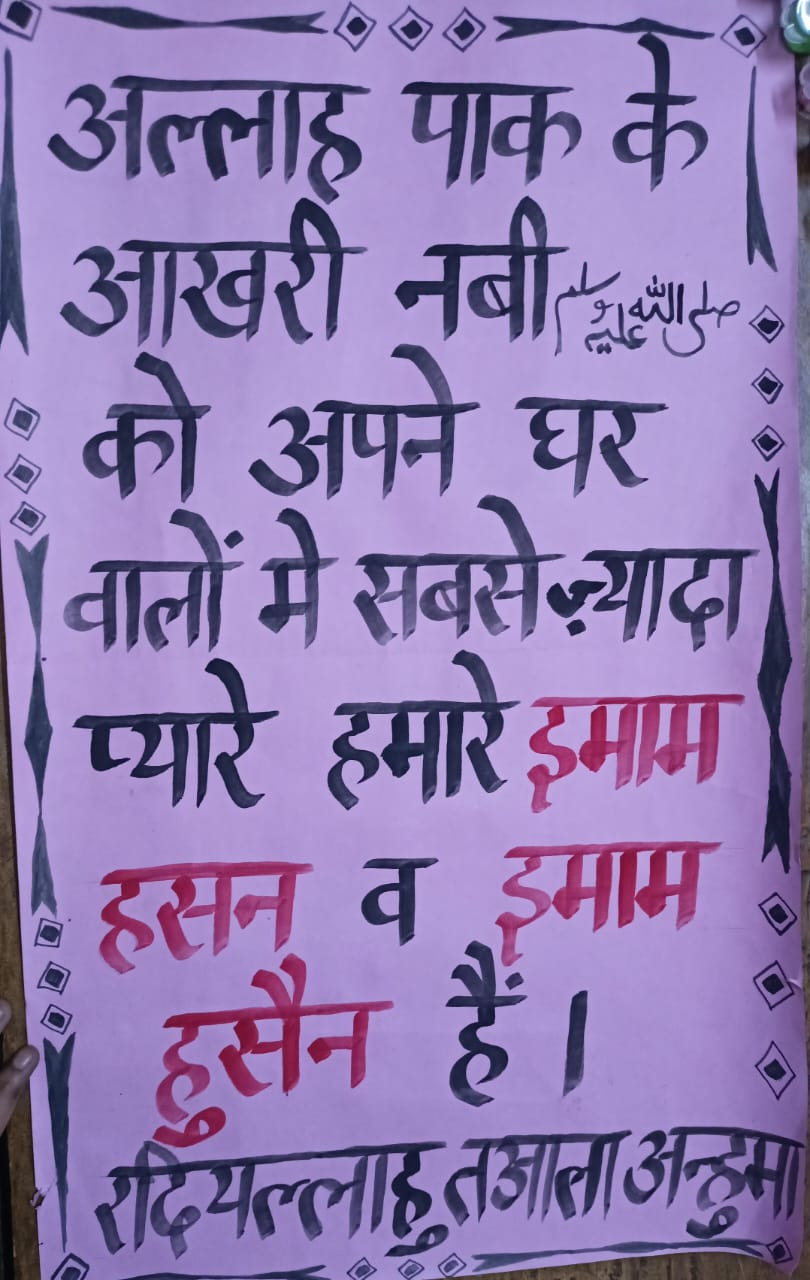 अल्लाह पाक के
आखरी नबी صلى الله عليه وسلم
को अपने घर
वालों मे सबसे ज़्यादा
प्यारे हमारे इमाम
हसन व इमाम
हुसैन हैं ।
रदियल्लाहु तआला अन्हुमा